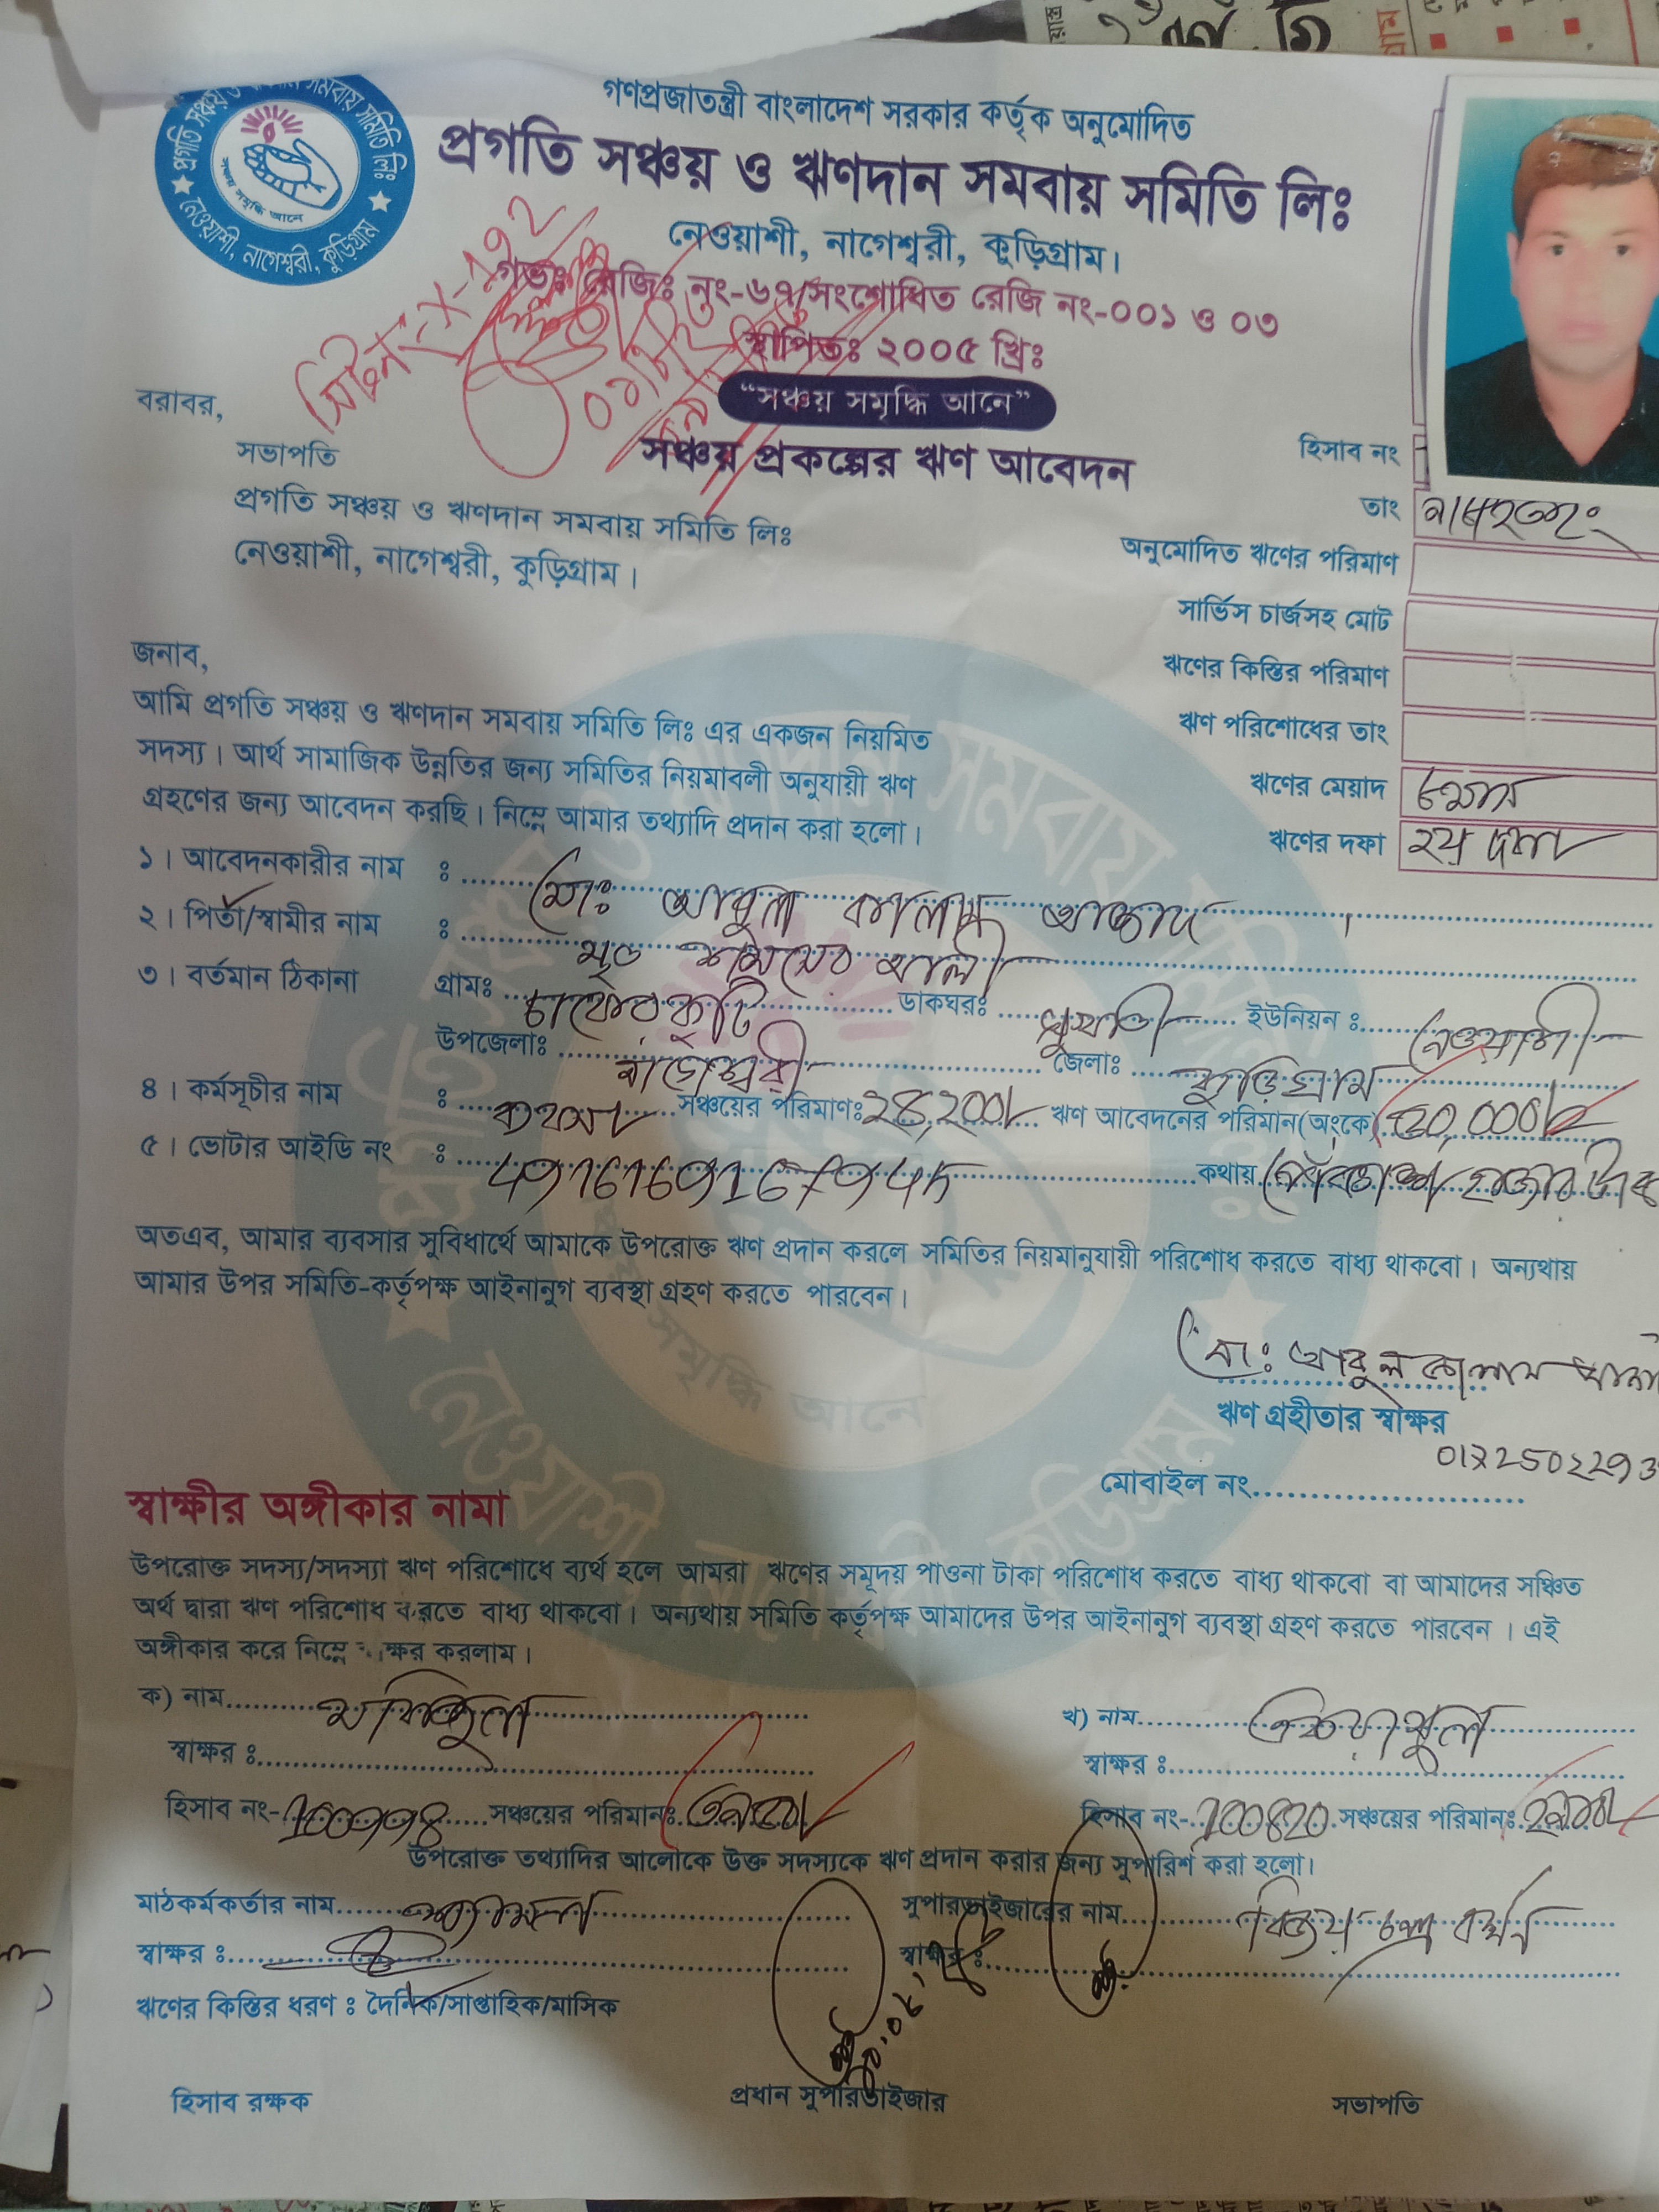 প্রগতি সঞ্চয় ও ঋণদান সমবায় সমিতি লিঃ
সঞ্চয় সমৃদ্ধি আনে
নেওয়াশী, নাগেশ্বরী, কুড়িগ্রাম
গণপ্রজাতন্ত্রী বাংলাদেশ সরকার কর্তৃক অনুমোদিত
প্রগতি সঞ্চয় ও ঋণদান সমবায় সমিতি লিঃ
নেওয়াশী, নাগেশ্বরী, কুড়িগ্রাম।
গভঃ রেজিঃ নং-৬৭/সংশোধিত রেজি নং-০০১ ও ০৩
স্থাপিতঃ ২০০৫ খ্রিঃ
“সঞ্চয় সমৃদ্ধি আনে”
সঞ্চয় প্রকল্পের ঋণ আবেদন
বরাবর,
সভাপতি
প্রগতি সঞ্চয় ও ঋণদান সমবায় সমিতি লিঃ
নেওয়াশী, নাগেশ্বরী, কুড়িগ্রাম।
হিসাব নং
তাং
অনুমোদিত ঋণের পরিমাণ
সার্ভিস চার্জসহ মোট
ঋণের কিস্তির পরিমাণ
ঋণ পরিশোধের তাং
ঋণের মেয়াদ
ঋণের দফা ২য় দফা
জনাব,
আমি প্রগতি সঞ্চয় ও ঋণদান সমবায় সমিতি লিঃ এর একজন নিয়মিত
সদস্য। আর্থ সামাজিক উন্নতির জন্য সমিতির নিয়মাবলী অনুযায়ী ঋণ
গ্রহণের জন্য আবেদন করছি। নিম্নে আমার তথ্যাদি প্রদান করা হলো।
১। আবেদনকারীর নাম : মোঃ আবুল কালাম আজাদ
২। পিতা/স্বামীর নাম : মৃত শমসের আলী
৩। বর্তমান ঠিকানা গ্রামঃ চাকেরকুটি ডাকঘরঃ সুখাতী ইউনিয়ন ঃ নেওয়াশী
উপজেলাঃ নাগেশ্বরী জেলাঃ কুড়িগ্রাম
৪। কর্মসূচীর নাম : ব্যবসা সঞ্চয়ের পরিমাণঃ ২৪,২০০/- ঋণ আবেদনের পরিমান(অংকে) ৫০,০০০/-
৫। ভোটার আইডি নং : কথায় পঞ্চাশ হাজার টাকা
অতএব, আমার ব্যবসার সুবিধার্থে আমাকে উপরোক্ত ঋণ প্রদান করলে সমিতির নিয়মানুযায়ী পরিশোধ করতে বাধ্য থাকবো। অন্যথায়
আমার উপর সমিতি-কর্তৃপক্ষ আইনানুগ ব্যবস্থা গ্রহণ করতে পারবেন।
মোঃ আবুল কালাম
ঋণ গ্রহীতার স্বাক্ষর
মোবাইল নং
স্বাক্ষীর অঙ্গীকার নামা
উপরোক্ত সদস্য/সদস্যা ঋণ পরিশোধে ব্যর্থ হলে আমরা ঋণের সমূদয় পাওনা টাকা পরিশোধ করতে বাধ্য থাকবো বা আমাদের সঞ্চিত
অর্থ দ্বারা ঋণ পরিশোধ করতে বাধ্য থাকবো। অন্যথায় সমিতি কর্তৃপক্ষ আমাদের উপর আইনানুগ ব্যবস্থা গ্রহণ করতে পারবেন। এই
অঙ্গীকার করে নিম্নে স্বাক্ষর করলাম।
ক) নাম
খ) নাম
স্বাক্ষর ঃ
স্বাক্ষর ঃ
হিসাব নং- সঞ্চয়ের পরিমানঃ
হিসাব নং- 100820 সঞ্চয়ের পরিমানঃ
উপরোক্ত তথ্যাদির আলোকে উক্ত সদস্যকে ঋণ প্রদান করার জন্য সুপারিশ করা হলো।
মাঠকর্মকর্তার নাম
সুপারভাইজারের নাম বিজয় চন্দ্র বর্মন
স্বাক্ষর ঃ
স্বাক্ষর ঃ
ঋণের কিস্তির ধরণ ঃ দৈনিক/সাপ্তাহিক/মাসিক
হিসাব রক্ষক
প্রধান সুপারভাইজার
সভাপতি